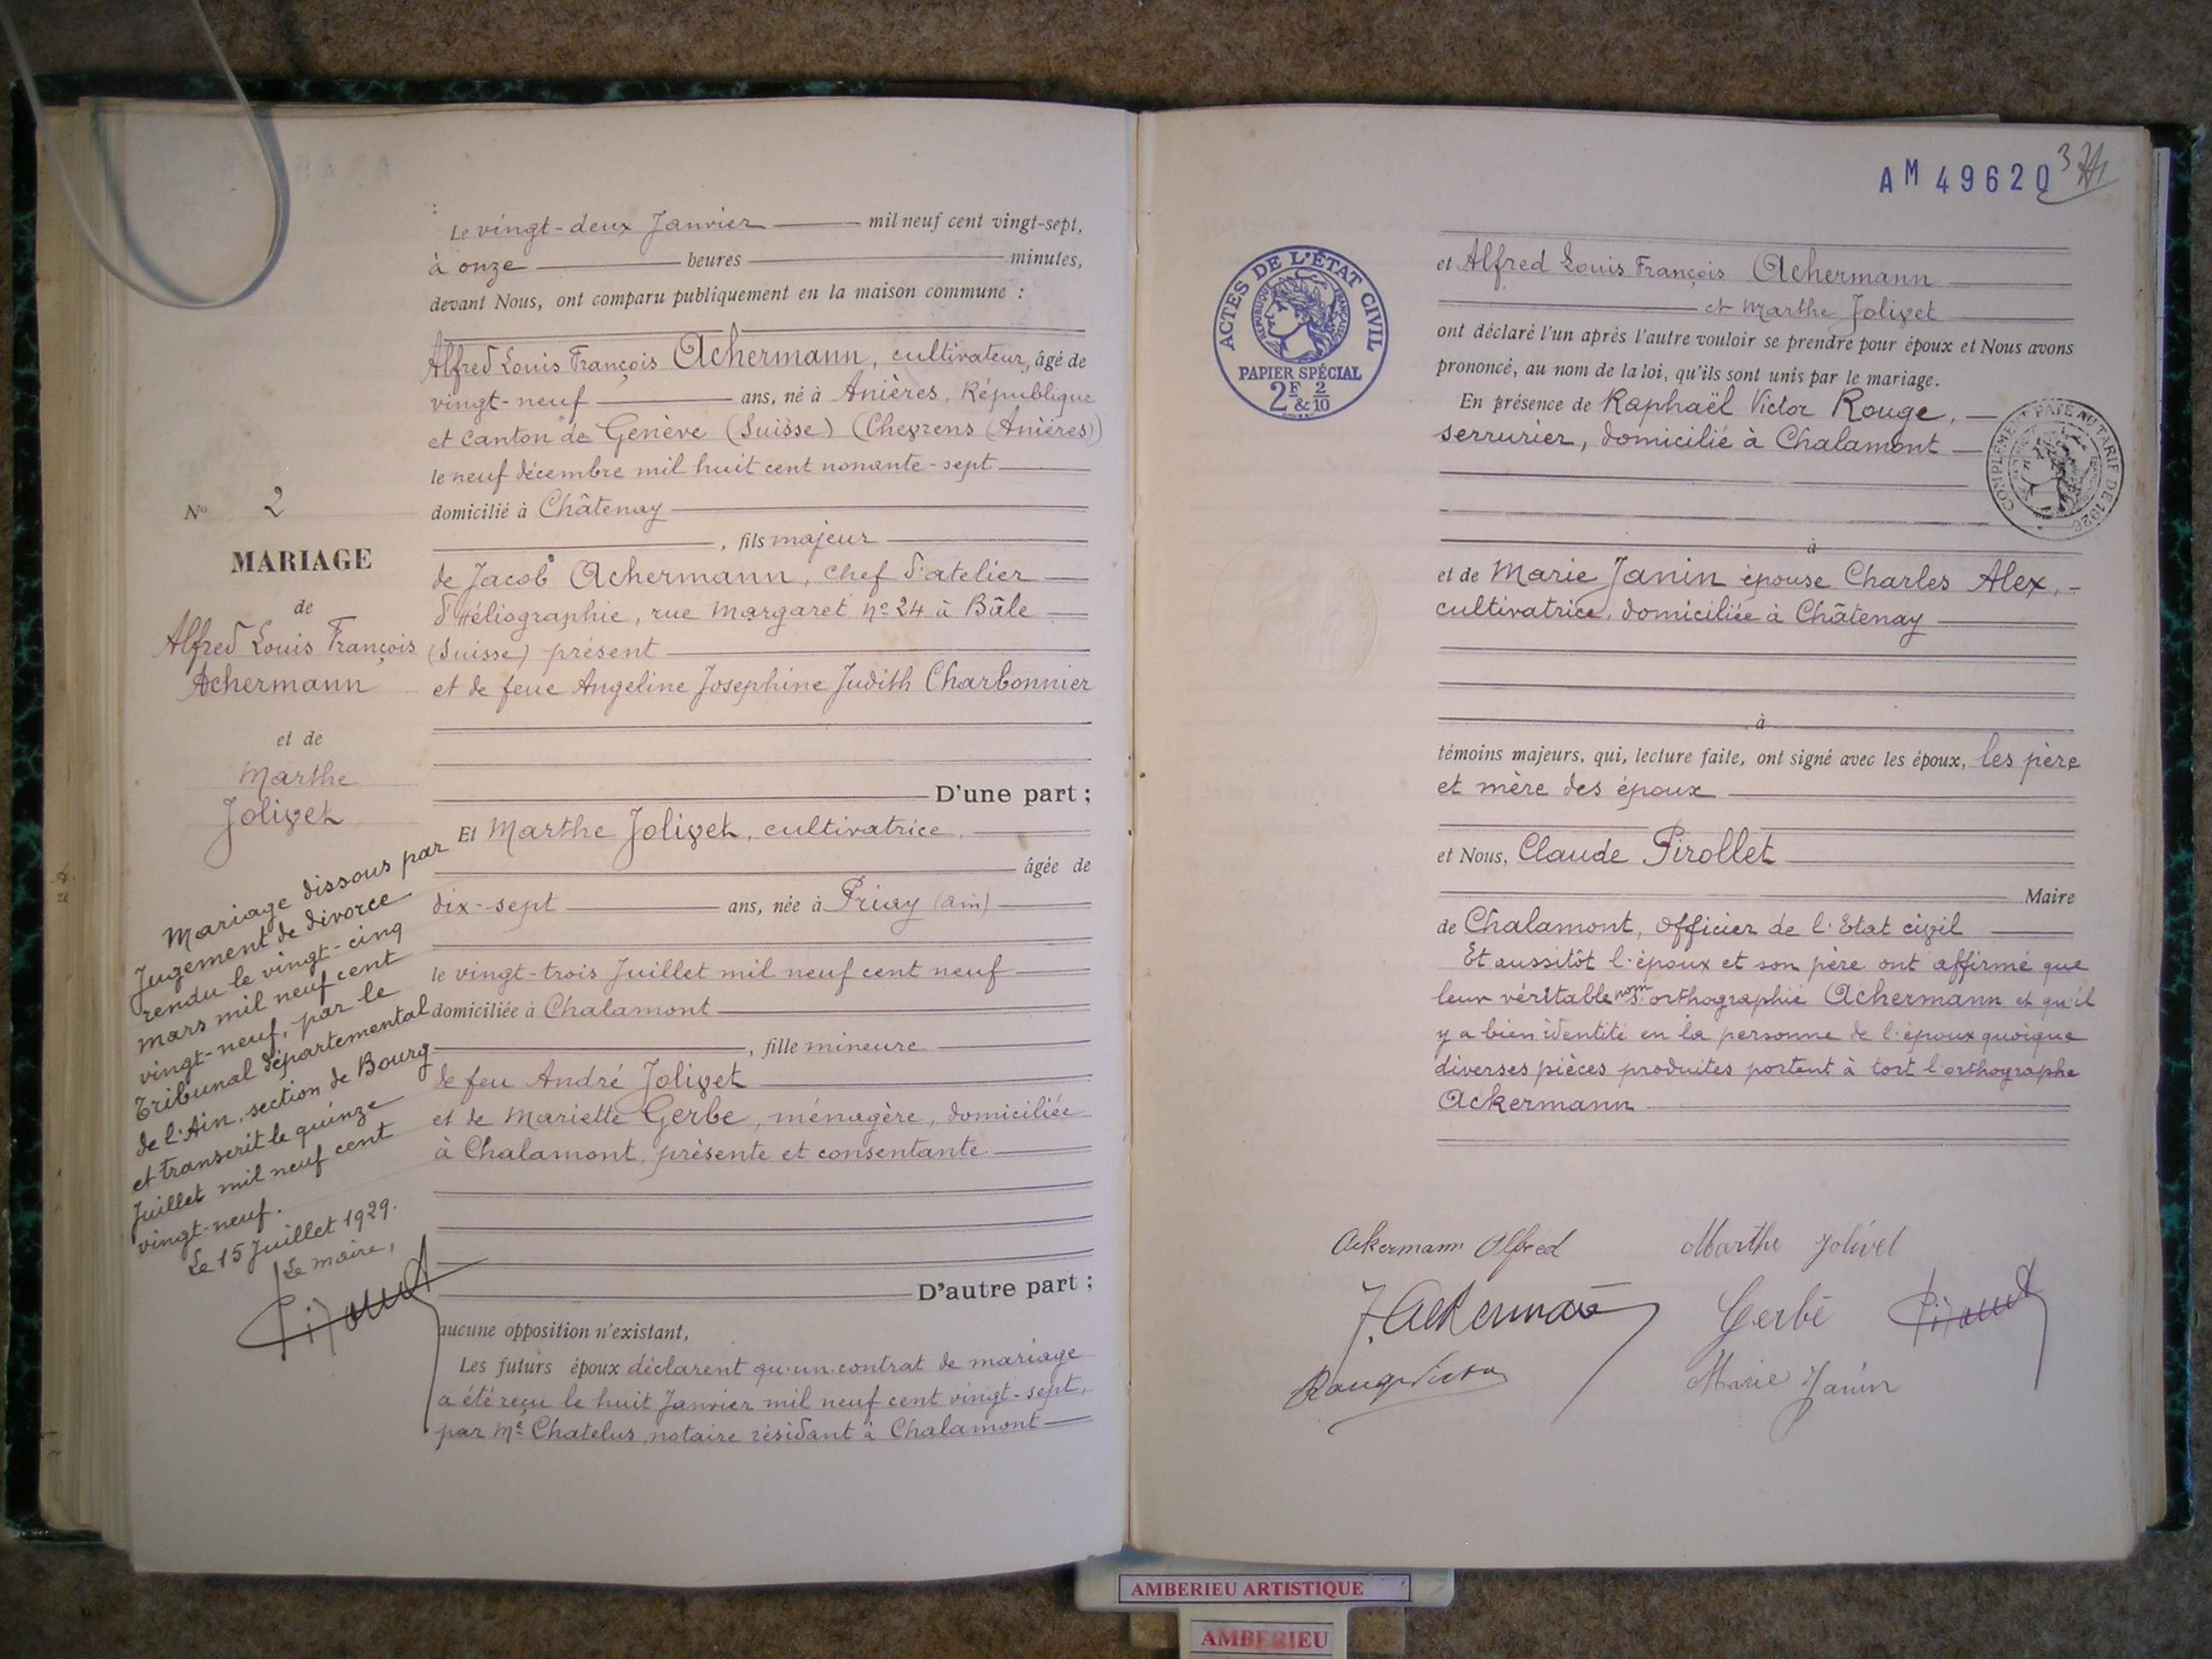 Le vingt-deux Janvier mil neuf cent vingt-sept,
à onze heures minutes,
devant Nous, ont comparu publiquement en la maison commune :
Alfred Louis François Achermann, cultivateur, âgé de
vingt-neuf ans, né à Anières, République
et Canton de Genève (Suisse) (Chevrens (Anières))
le neuf décembre mil huit cent nonante-sept
domicilié à Châtenay
, fils majeur
de Jacob Achermann, chef d'atelier
d'Héliographie, rue Margaret No 24 à Bâle
(Suisse) présent
et de feue Angeline Josephine Judith Charbonnier
D'une part ;
Et Marthe Jolivet, cultivatrice,
âgée de
dix-sept ans, née à Priay (Ain)
le vingt-trois Juillet mil neuf cent neuf
domiciliée à Chalamont
, fille mineure
de feu André Jolivet
et de Mariette Gerbe, ménagère, domiciliée
à Chalamont, présente et consentante
D'autre part ;
aucune opposition n'existant,
Les futurs époux déclarent qu'un contrat de mariage
a été reçu le huit Janvier mil neuf cent vingt-sept,
par Me Chatelus, notaire résidant à Chalamont
No 2
MARIAGE
de
Alfred Louis François
Achermann
et de
Marthe
Jolivet
Mariage dissous par
Jugement de divorce
rendu le vingt-cinq
mars mil neuf cent
vingt-neuf, par le
Tribunal départemental
de l'Ain, section de Bourg
et transcrit le quinze
Juillet mil neuf cent
vingt-neuf.
Le 15 Juillet 1929.
Le maire,
AM 49620
ACTES DE L'ÉTAT CIVIL
RÉPUBLIQUE FRANÇAISE
PAPIER SPÉCIAL
2F & 2/10
et Alfred Louis François Achermann
et Marthe Jolivet
ont déclaré l'un après l'autre vouloir se prendre pour époux et Nous avons
prononcé, au nom de la loi, qu'ils sont unis par le mariage.
En présence de Raphaël Victor Rouge,
serrurier, domicilié à Chalamont
COMPLÉMENT PAYÉ AU TARIF DE 1926
à
et de Marie Janin épouse Charles Alex,
cultivatrice, domiciliée à Châtenay
à
témoins majeurs, qui, lecture faite, ont signé avec les époux, les père
et mère des époux
et Nous, Claude Pirollet
Maire
de Chalamont, Officier de l'Etat civil
Et aussitôt l'époux et son père ont affirmé que
leur véritable nom s'orthographie Achermann et qu'il
y a bien identité en la personne de l'époux quoique
diverses pièces produites portent à tort l'orthographe
Ackermann
Ackermann Alfred Marthe Jolivet
J. Ackermann Gerbe
Rouge Victor Marie Janin
AMBERIEU ARTISTIQUE
AMBERIEU